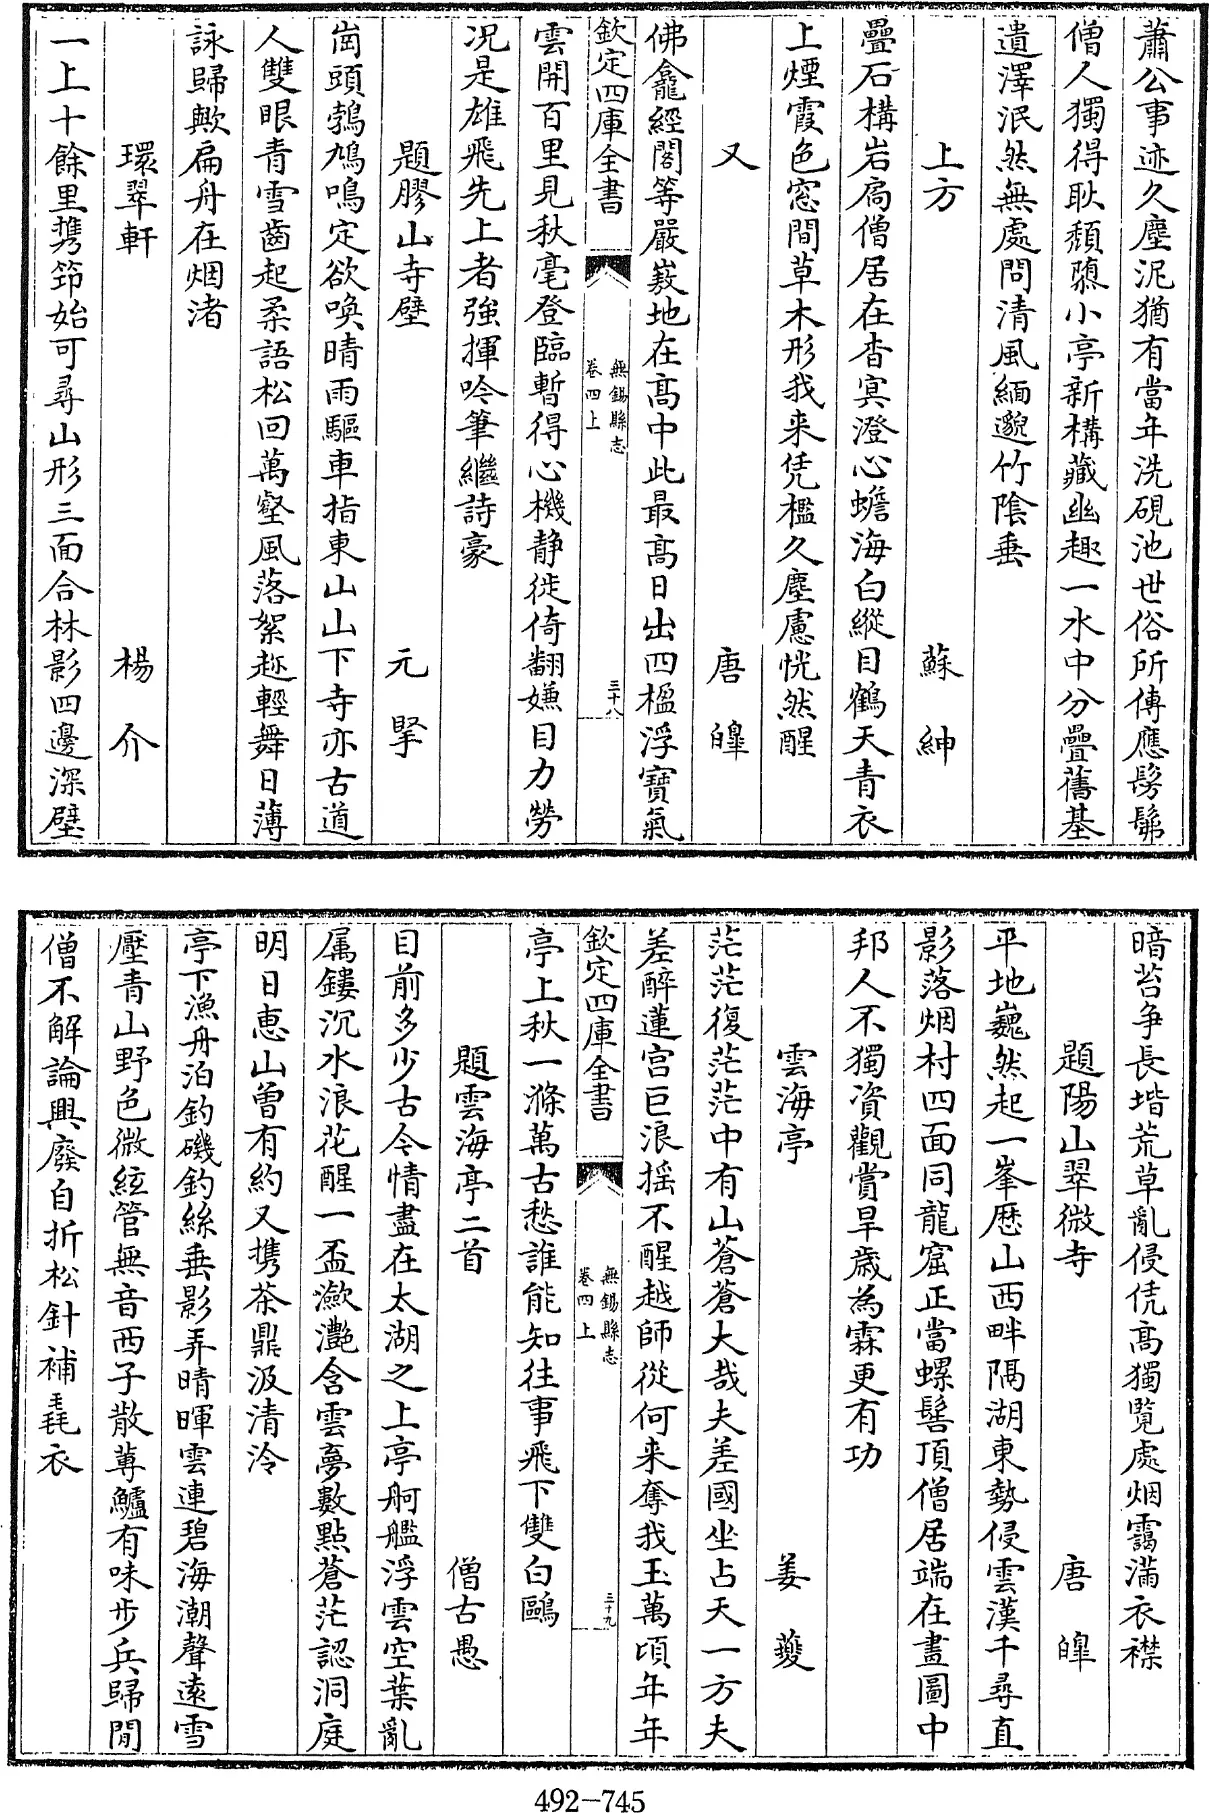 蕭公事迹久塵泥猶有當年洗硯池世俗所傳應髣髴
僧人獨得耿頽隳小亭新構藏幽趣一水中分疊舊基
遺澤泯然無處問清風緬邈竹陰垂
上方 蘇紳
疊石構岩扃僧居在杳冥澄心蟾海白縱目鶴天青衣
上煙霞色窓間草木形我来凭檻久塵慮恍然醒
又 唐皥
佛龕經閣等嚴嶔地在髙中此最髙日出四楹浮寶氣
欽定四庫全書
無錫縣志
卷四上
三十八
雲開百里見秋毫登臨暫得心機静徙倚翻嫌目力勞
况是雄飛先上者強揮吟筆繼詩豪
題膠山寺壁 元掔
崗頭鵓鳩鳴定欲喚晴雨驅車指東山山下寺亦古道
人雙眼青雪齒起柔語松回萬壑風落絮趂輕舞日薄
詠歸歟扁舟在烟渚
環翠軒 楊介
一上十餘里携笻始可尋山形三面合林影四邊深壁
暗苔争長堦荒草亂侵凭髙獨覽處烟靄滿衣襟
題陽山翠微寺 唐皥
平地巍然起一峯歴山西畔隔湖東勢侵雲漢千尋直
影落烟村四面同龍窟正當螺髻頂僧居端在畫圖中
邦人不獨資觀賞旱歲為霖更有功
雲海亭 姜夔
茫茫復茫茫中有山蒼蒼大哉夫差國坐占天一方夫
差醉蓮宫巨浪揺不醒越師從何来奪我玉萬頃年年
欽定四庫全書
無錫縣志
卷四上
三十九
亭上秋一滌萬古愁誰能知往事飛下雙白鷗
題雲海亭二首 僧古愚
目前多少古今情盡在太湖之上亭舸艦浮雲空葉亂
属鏤沉水浪花醒一盃瀲灩含雲夢數點蒼茫認洞庭
明日惠山曽有約又携茶鼎汲清泠
亭下漁舟泊釣磯釣絲垂影弄晴暉雲連碧海潮聲遠雪
壓青山野色微絃管無音西子散蓴鱸有味步兵歸閒
僧不解論興廢自折松針補毳衣
492-745